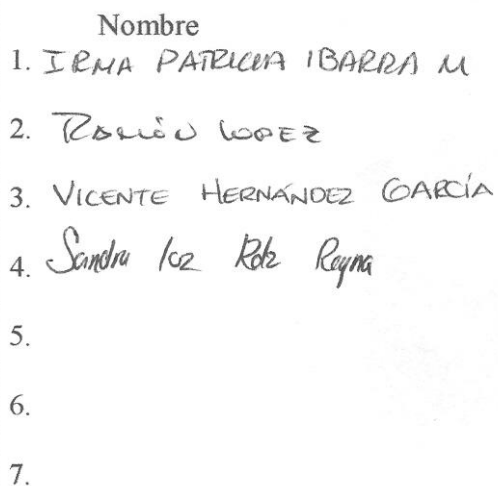 Nombre
1. IRMA PATRICIA IBARRA M
2. Ramón LOPEZ
3. VICENTE HERNÁNDEZ GARCÍA
4. Sandra Rdz Reyna
5.
6.
7.